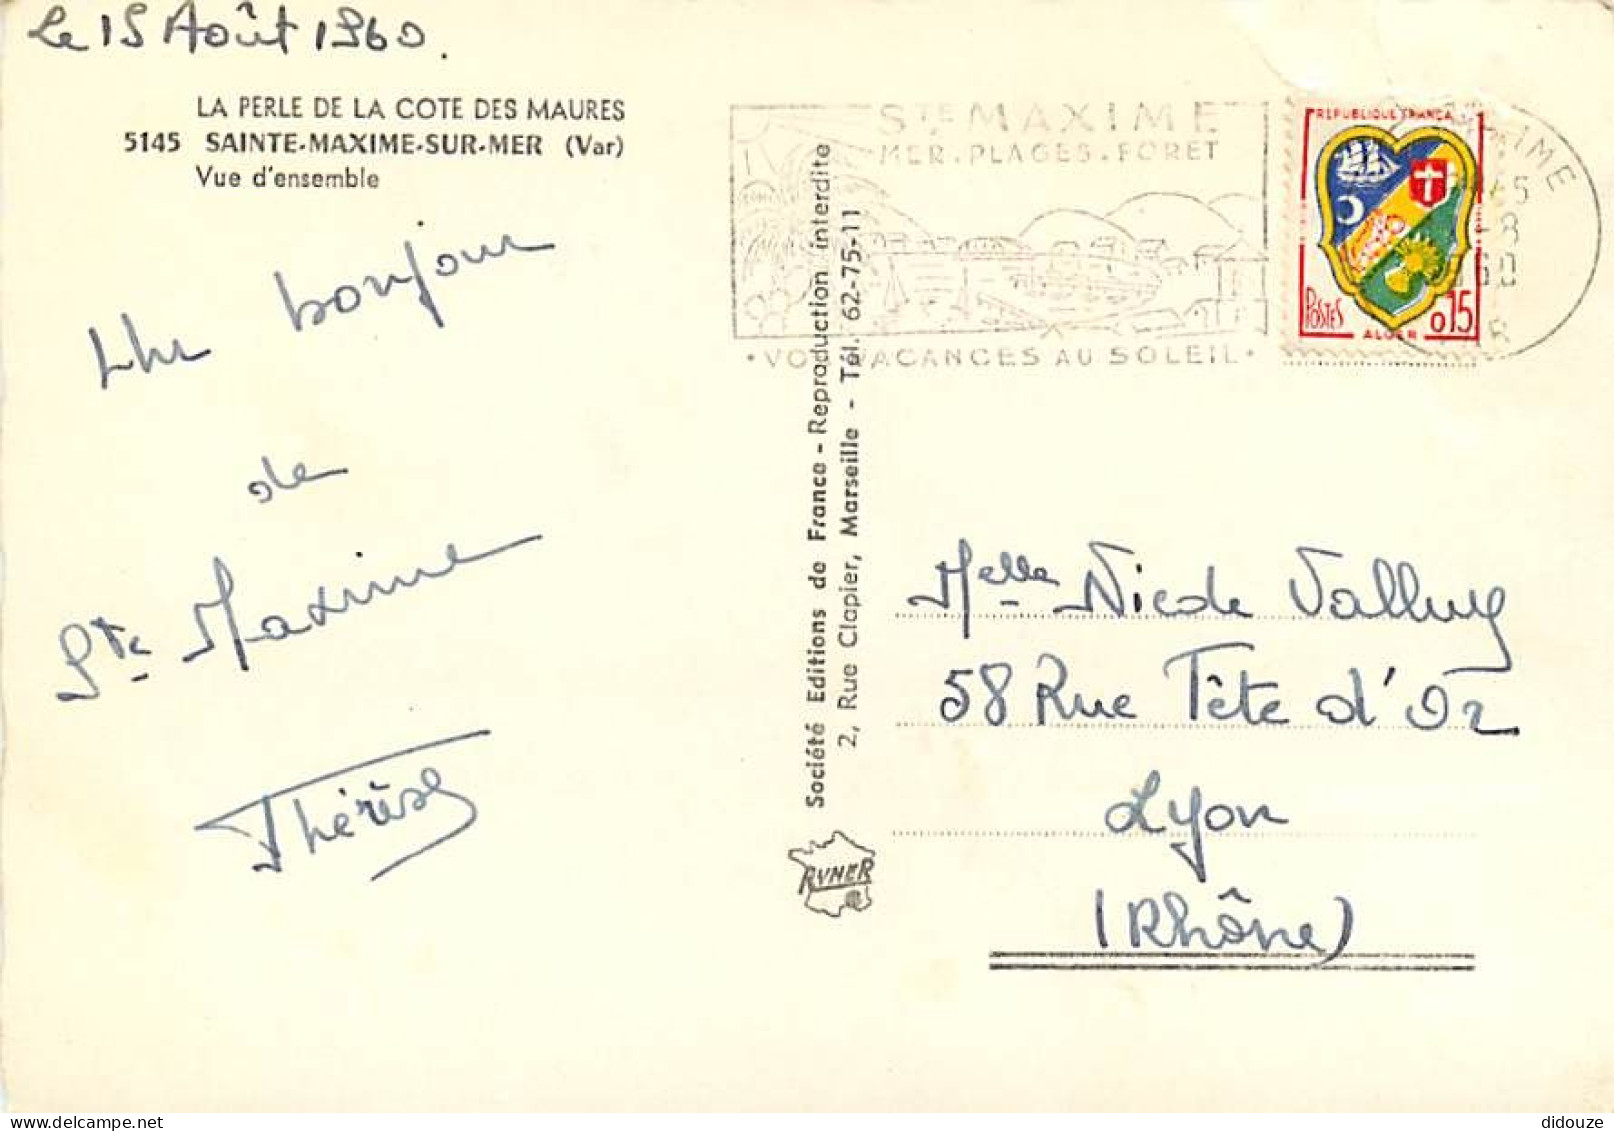 Le 15 Août 1960.
LA PERLE DE LA COTE DES MAURES
5145 SAINTE-MAXIME-SUR-MER (Var)
Vue d'ensemble
Un bonjour
de
Ste Maxime
Thérèse
Société Editions de France - Reproduction interdite
2, Rue Clapier, Marseille - Tél. 62-75-11
RYNER
STE MAXIME
MER.PLAGES.FORET
VOS VACANCES AU SOLEIL
REPUBLIQUE FRANCA
POSTES
0,15
ALGER
XIME
-8
60
Melle Nicole Valluy
58 Rue Tête d'Or
Lyon
(Rhône)
didouze